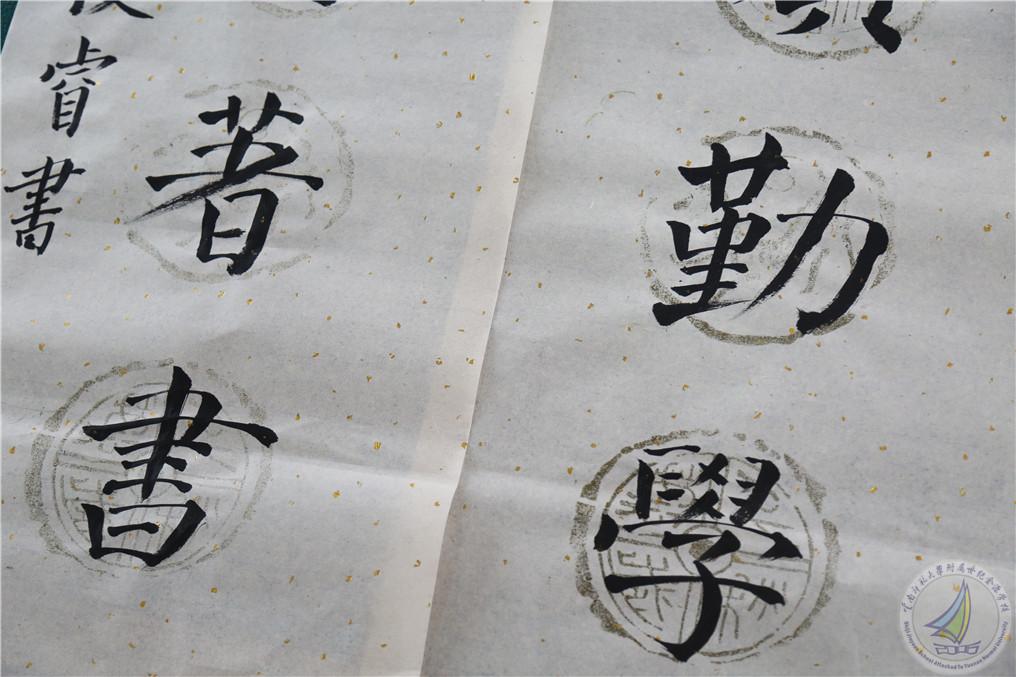 勤學
著書
睿書
云南师范大學附属世纪金源学校
Shiji Jinyuan School Attached To Yunnan Normal University